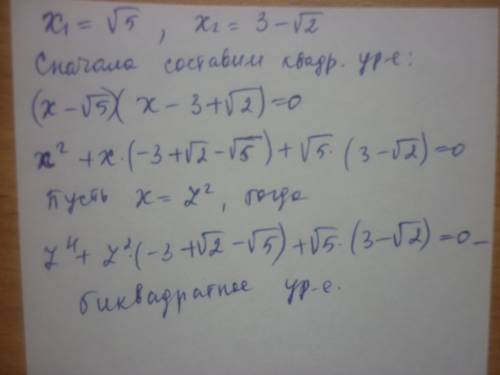 x₁ = √5 , x₂ = 3 − √2
Сначала составим квадр. ур-е:
(x − √5)( x − 3 + √2) = 0
x² + x·(−3 + √2 − √5) + √5·(3 − √2) = 0
Пусть x = z², тогда
z⁴ + z²·(−3 + √2 − √5) + √5·(3 − √2) = 0 –
биквадратное ур-е.